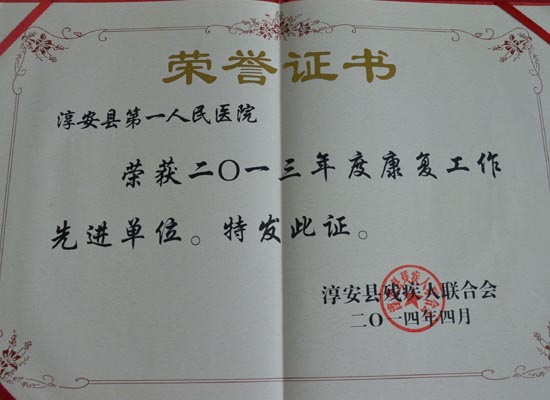 荣誉证书
淳安县第一人民医院
荣获二〇一三年度康复工作
先进单位。特发此证。
淳安县残疾人联合会
二〇一四年四月